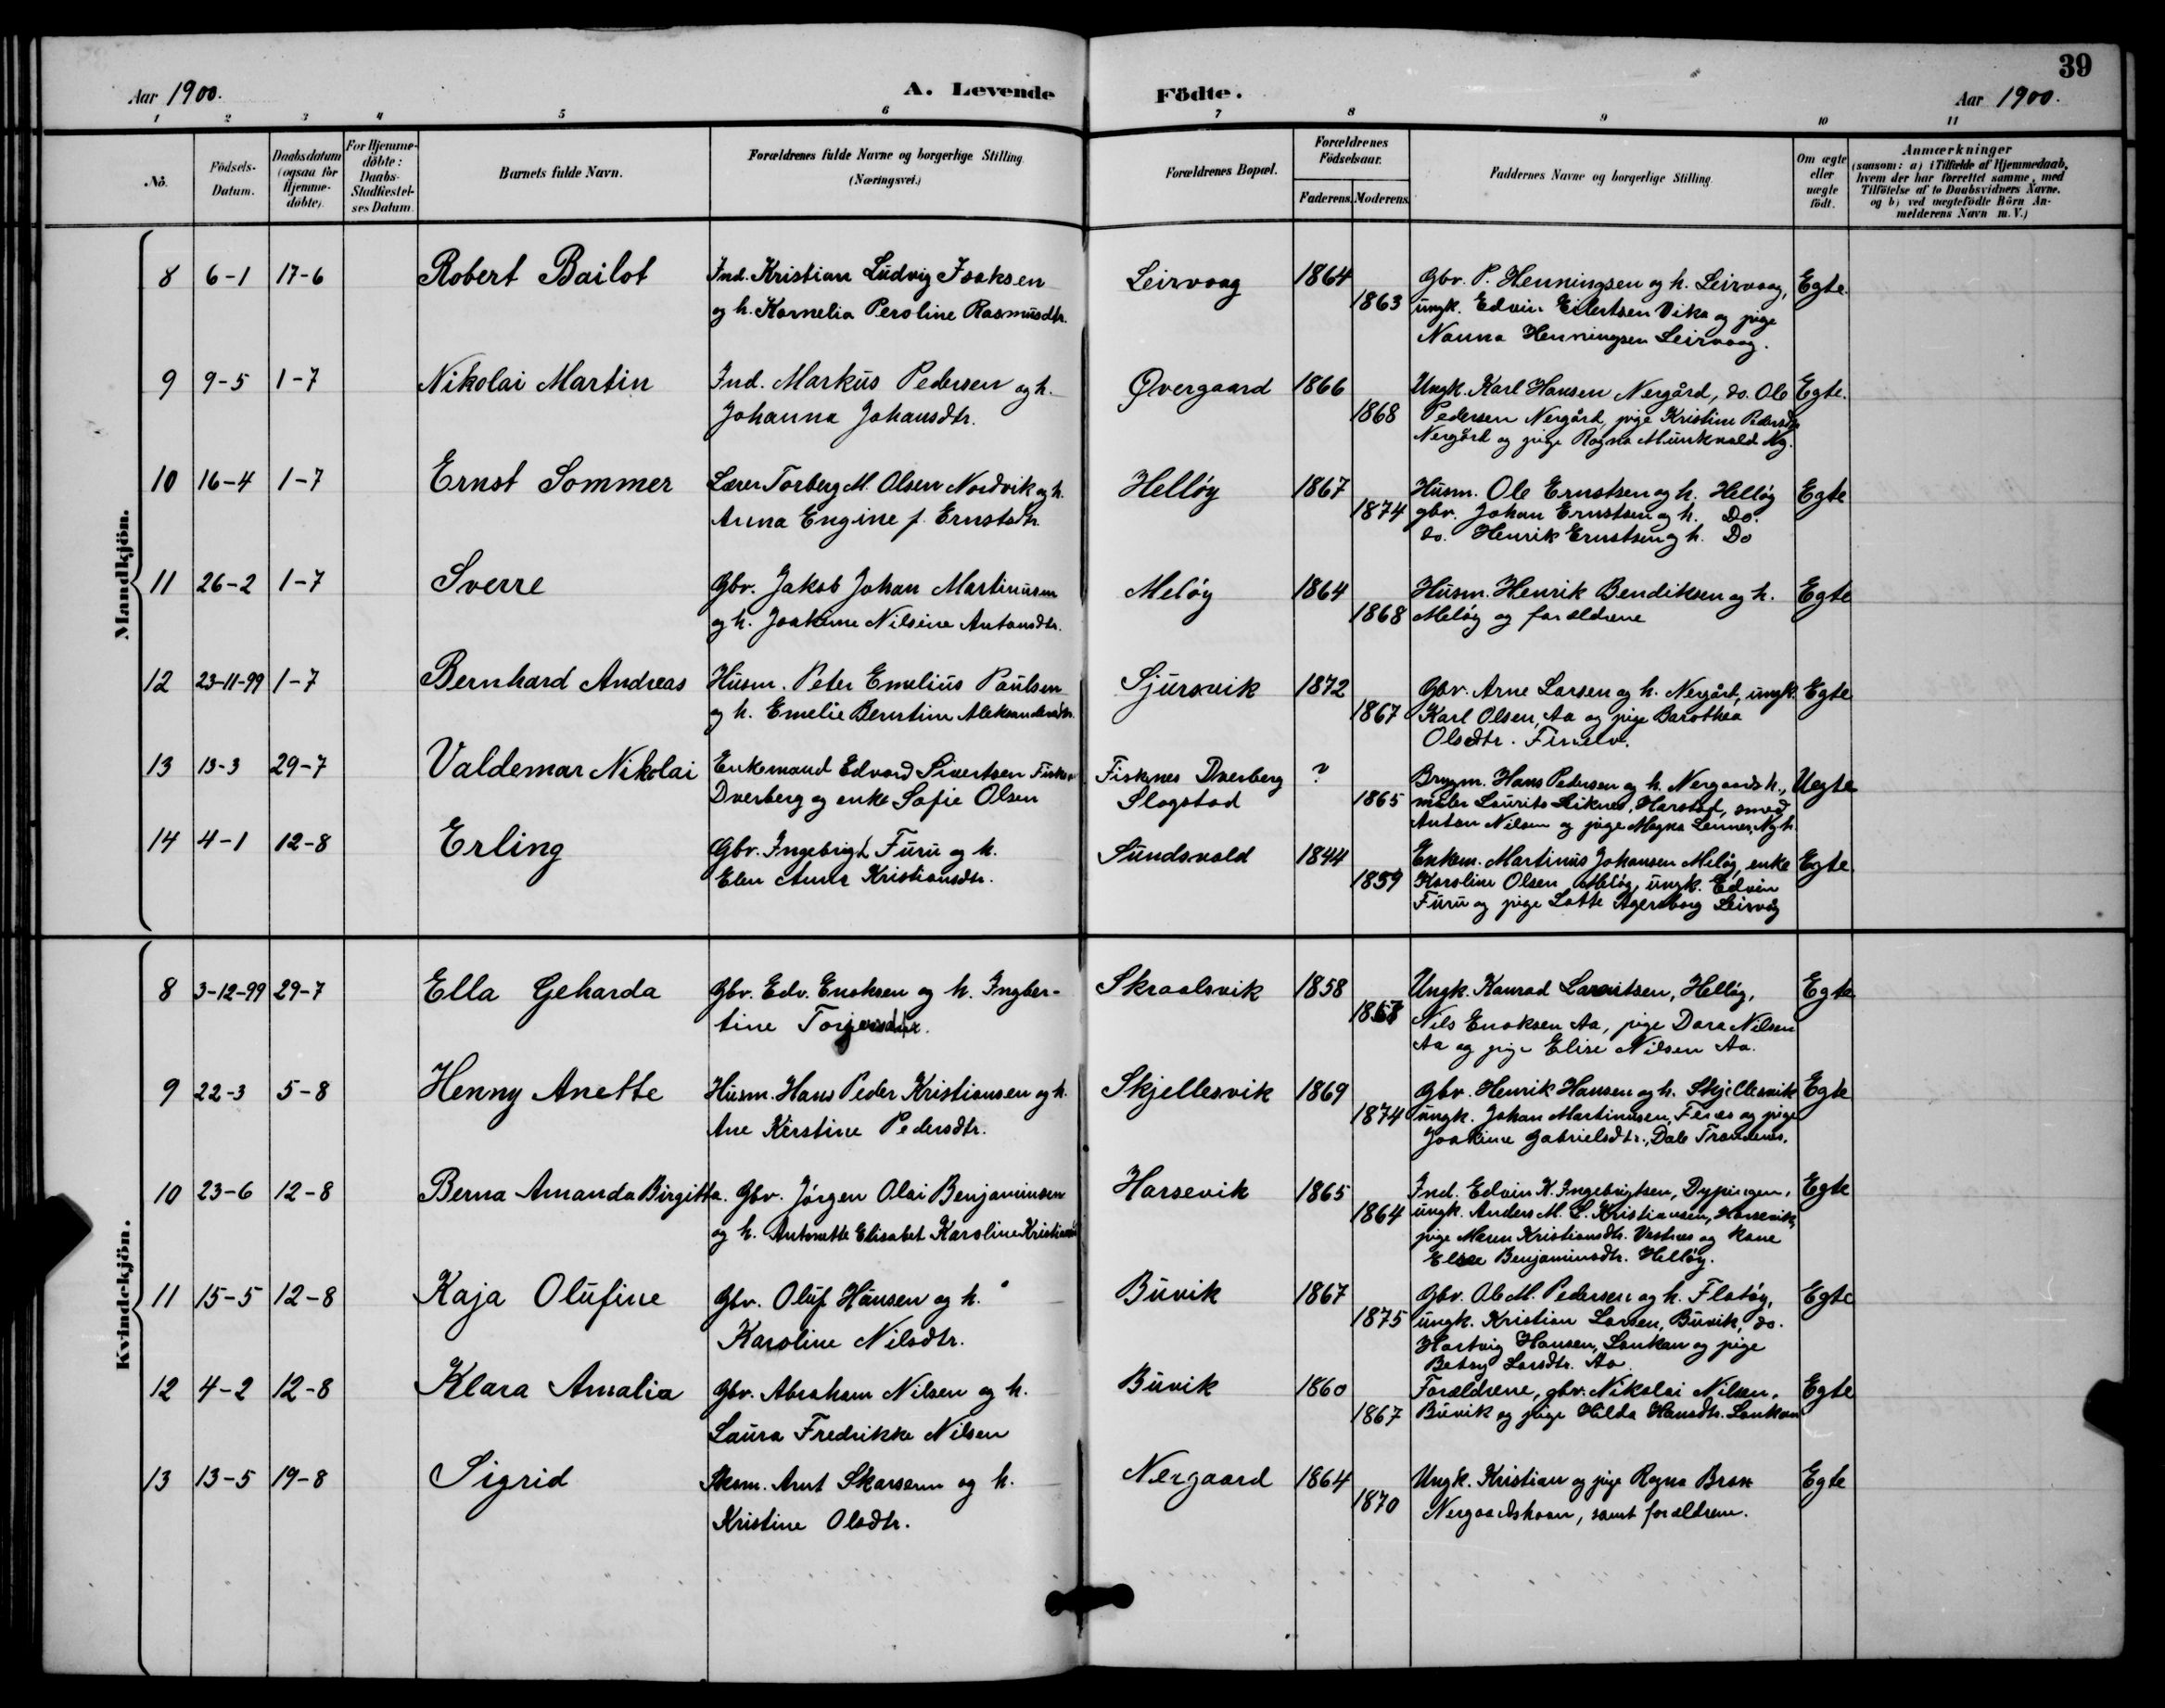 39
Aar 1900. A. Levende Födte. Aar 1900.
1 2 3 4 5 6 7 8 9 10 11
No. Födsels-Datum. Daabsdatum (ogsaa for Hjemme-döbte). For Hjemme-döbte: Daabs-Stadfæstel-ses Datum. Barnets fulde Navn. Forældrenes fulde Navne og borgerlige Stilling (Næringsvei.) Forældrenes Bopæl. Forældrenes Födselsaar. Faderens. Moderens. Faddernes Navne og borgerlige Stilling. Om ægte eller uægte födt. Anmærkninger (saasom: a) i Tilfælde af Hjemmedaab, hvem der har forrettet samme, med Tilföielse af to Daabsvidners Navne. og b) ved uægtefödte Börn An-melderens Navn m. V.)
Mandkjön.
8 6-1 17-6 Robert Bailot Ind. Kristian Ludvig Isaksen Leirvaag 1864 Gbr. P. Henningsen og h. Leirvaag, Egte.
og h. Kornelia Peroline Rasmusdtr. 1863 ungk. Edvin Eilertsen Vika og pige
Nanna Henningsen Leirvaag.
9 9-5 1-7 Nikolai Martin Ind. Markus Pedersen og h. Øvergaard 1866 Ungk. Karl Hansen Nergård, do. Ole Egte.
Johanna Johansdtr. 1868 Pedersen Nergård, pige Kristine Pedersdtr
Nergård og pige Ragna Munkvold Ng.
10 16-4 1-7 Ernst Sommer Lærer Torberg M. Olsen Nordvik og h. Helløy 1867 Husm. Ole Ernstsen og h. Helløy Egte
Anna Engine f. Ernstsdtr 1874 gbr. Johan Ernstsen og h. Do.
do. Henrik Ernstsen og h. Do
11 26-2 1-7 Sverre Gbr. Jakob Johan Martinusen Meløy 1864 Husm. Henrik Bendiksen og h. Egte
og h. Joakime Nilsine Antonsdtr. 1868 Meløy og forældrene
12 23-11-99 1-7 Bernhard Andreas Husm. Peter Emelius Paulsen Sjursvik 1872 Gbr. Arne Larsen og h. Nergård, ungk. Egte
og h. Emelie Berntine Aleksandersdtr. 1867 Karl Olsen, Aa og pige Barothea
Olsdtr.
13 13-3 29-7 Valdemar Nikolai Enkemand Edvard Sivertsen Fisknes Fisknes Dverberg ? Brygm. Hans Pedersen og h. Nergaardsh., Uegte
Dverberg og enke Sofie Olsen Slagstad 1865 maler Laurits Liknes, Harstad, smed
Anton Nilsen og pige Magna Ngh.
14 4-1 12-8 Erling Gbr. Ingebrigt Furu og h. Sundsvold 1844 Enkem. Martinus Johansen Meløy, enke Egte.
Elen Anna Kristiansdtr. 1859 Karoline Olsen Meløy, ungk. Edvin
Furu og pige Lotte Agersborg Leirvåg
Kvindekjön.
8 3-12-99 29-7 Ella Geharda Gbr. Edv. Enoksen og h. Ingber- Skraalsvik 1858 Ungk. Konrad Lauritsen, Helløy, Egte
tine 1868 Nils Enoksen Aa, pige Dora Nilsen
Aa og pige Elise Nilsen Aa.
9 22-3 5-8 Henny Anette Husm. Hans Peder Kristiansen og h. Skjellesvik 1869 Gbr. Henrik Hansen og h. Skjellesvik Egte
Ane Kerstine Pedersdtr. 1874 ungk. Johan Martinusen, og pige
Joakime Gabrielsdtr., Dale Trondenes.
10 23-6 12-8 Berna Amanda Birgitta. Gbr. Jörgen Olai Benjaminsen Harsevik 1865 Ind. Edvin K. Ingebrigtsen, Dypingen, Egte
og h. Antonette Elisabet Karoline 1864 ungk. Anders M. L. Kristiansen, Harsevik,
pige Maren Kristiansdtr. Vestnes og kone
Else Benjaminsdtr. Helløy.
11 15-5 12-8 Kaja Olufine Gbr. Oluf Hansen og h. Buvik 1867 Gbr. Ole M. Pedersen og h. Flatøy, Egte
Karoline Nilsdtr. 1875 ungk. Kristian Larsen, Buvik, do.
Hartvig Hansen, Lankan og pige
Betsy Larsdtr. Aa.
12 4-2 12-8 Klara Amalia Gbr. Abraham Nilsen og h. Buvik 1860 Forældrene, gbr. Nikolai Nilsen, Egte
Laura Fredrikke Nilsen 1867 Buvik og pige Hilda Hansdtr. Lankan
13 13-5 19-8 Sigrid Skom. Arnt Skarsem og h. Nergaard 1864 Ungk. Kristian og pige Ragna Brox Egte
Kristine Olsdtr. 1870 Nergaardshavn, samt forældrene.